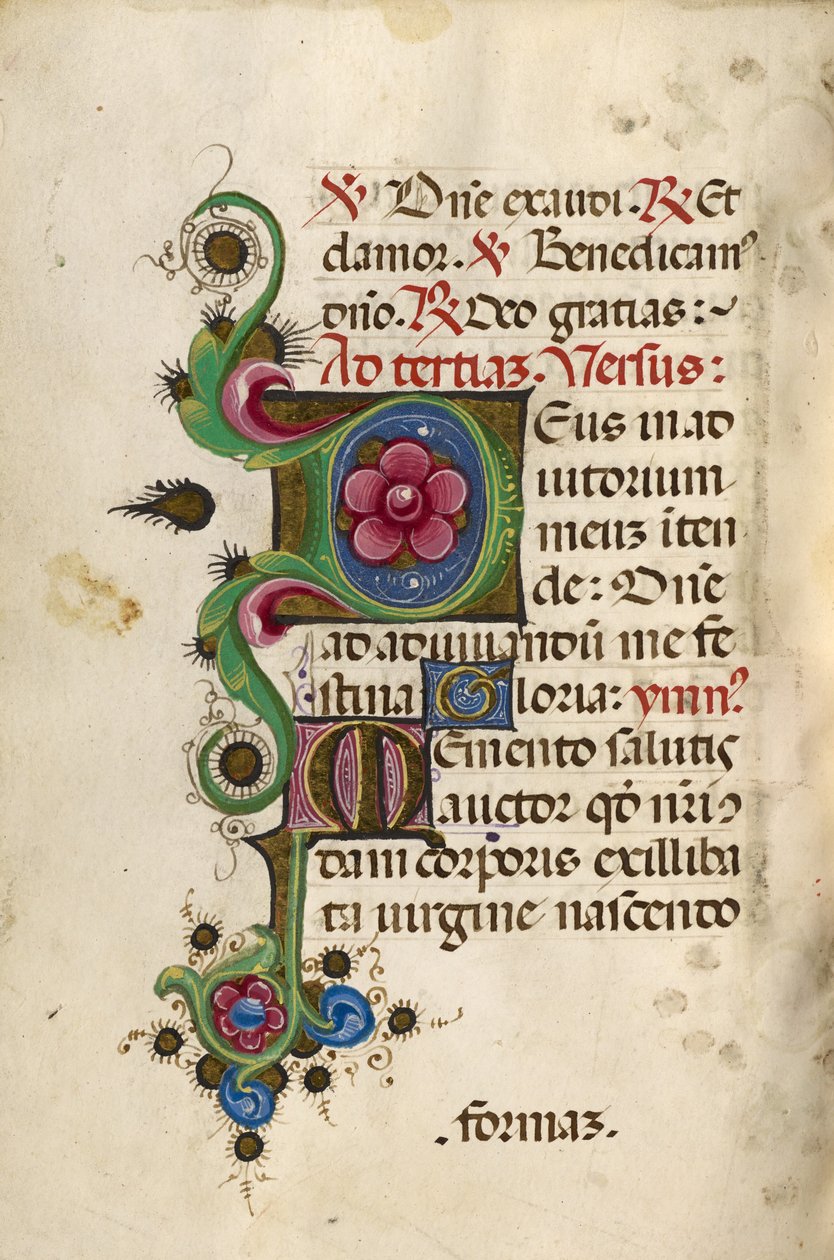 ℣ Dn̄e exaudi. ℟ Et
clamor. ℣ Benedicamꝰ
dn̄o. ℟ Deo gratias:~
Ad tertiaꝫ. Versus:
DEus in ad
iutorium
meuꝫ īten
de: Dn̄e
ad adiuuandū me fe
stina Gloria: ymnꝰ
MEmento salutis
auctor qđ nr̄i q̄
dam corporis exilliba
ta uirgine nascendo
.formaꝫ.